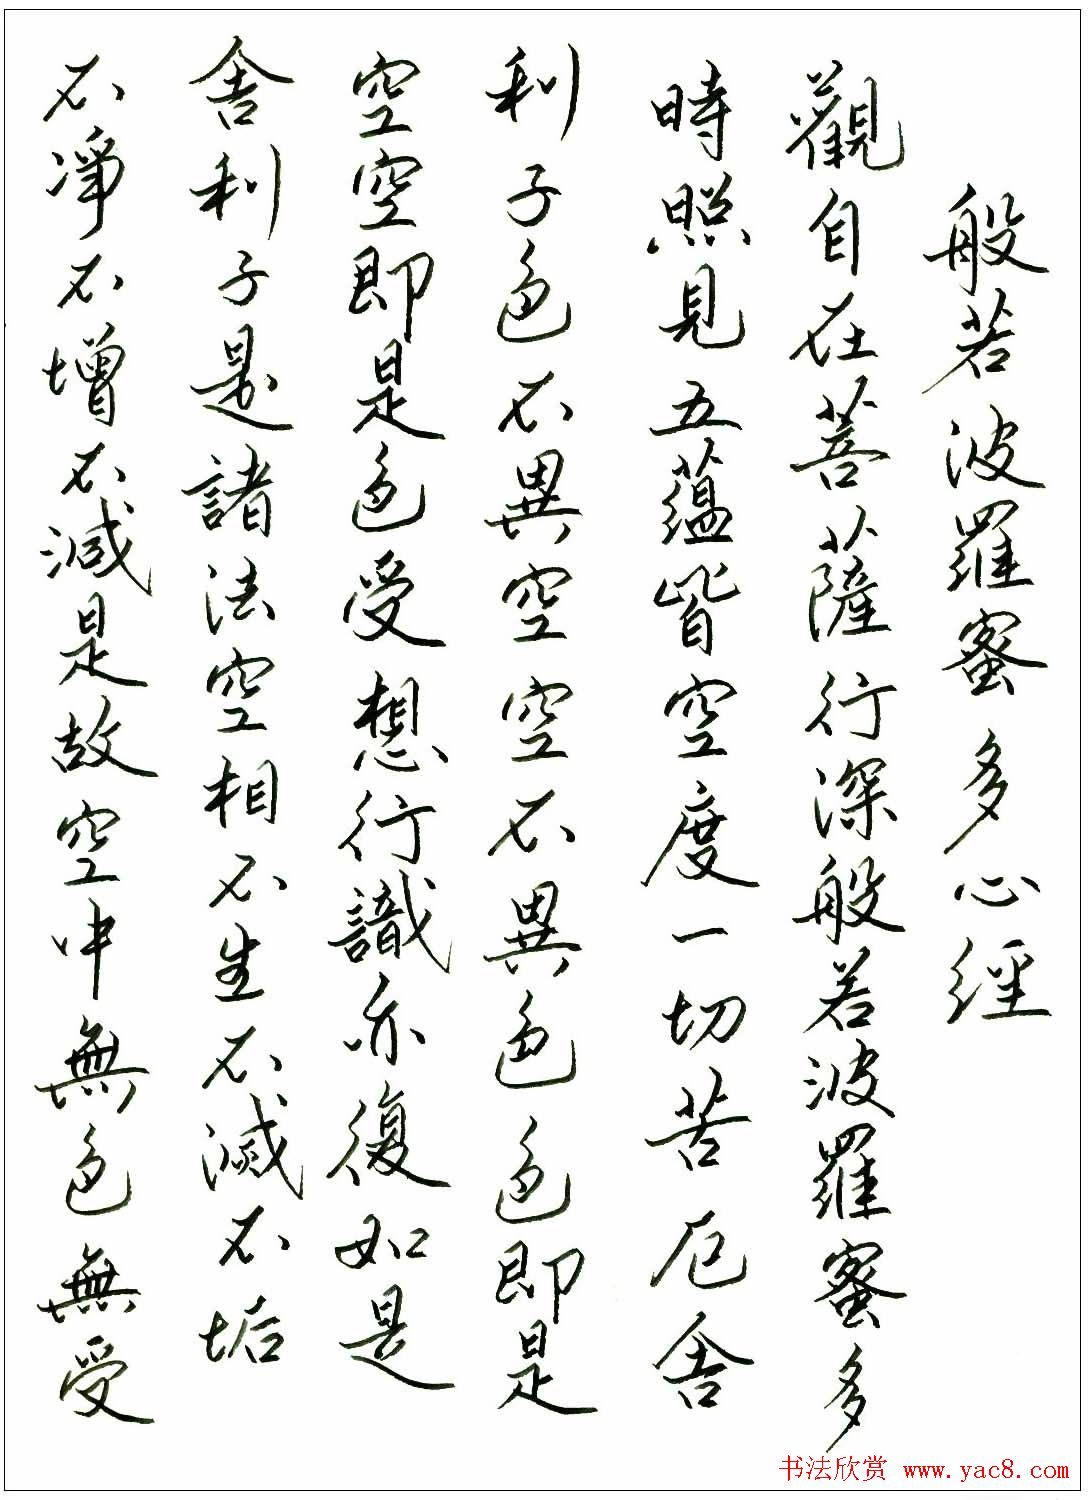 般若波羅蜜多心經
觀自在菩薩行深般若波羅蜜多
時照見五蘊皆空度一切苦厄舍
利子色不異空空不異色色即是
空空即是色受想行識亦復如是
舍利子是諸法空相不生不滅不垢
不淨不增不減是故空中無色無受
书法欣赏 www.yac8.com